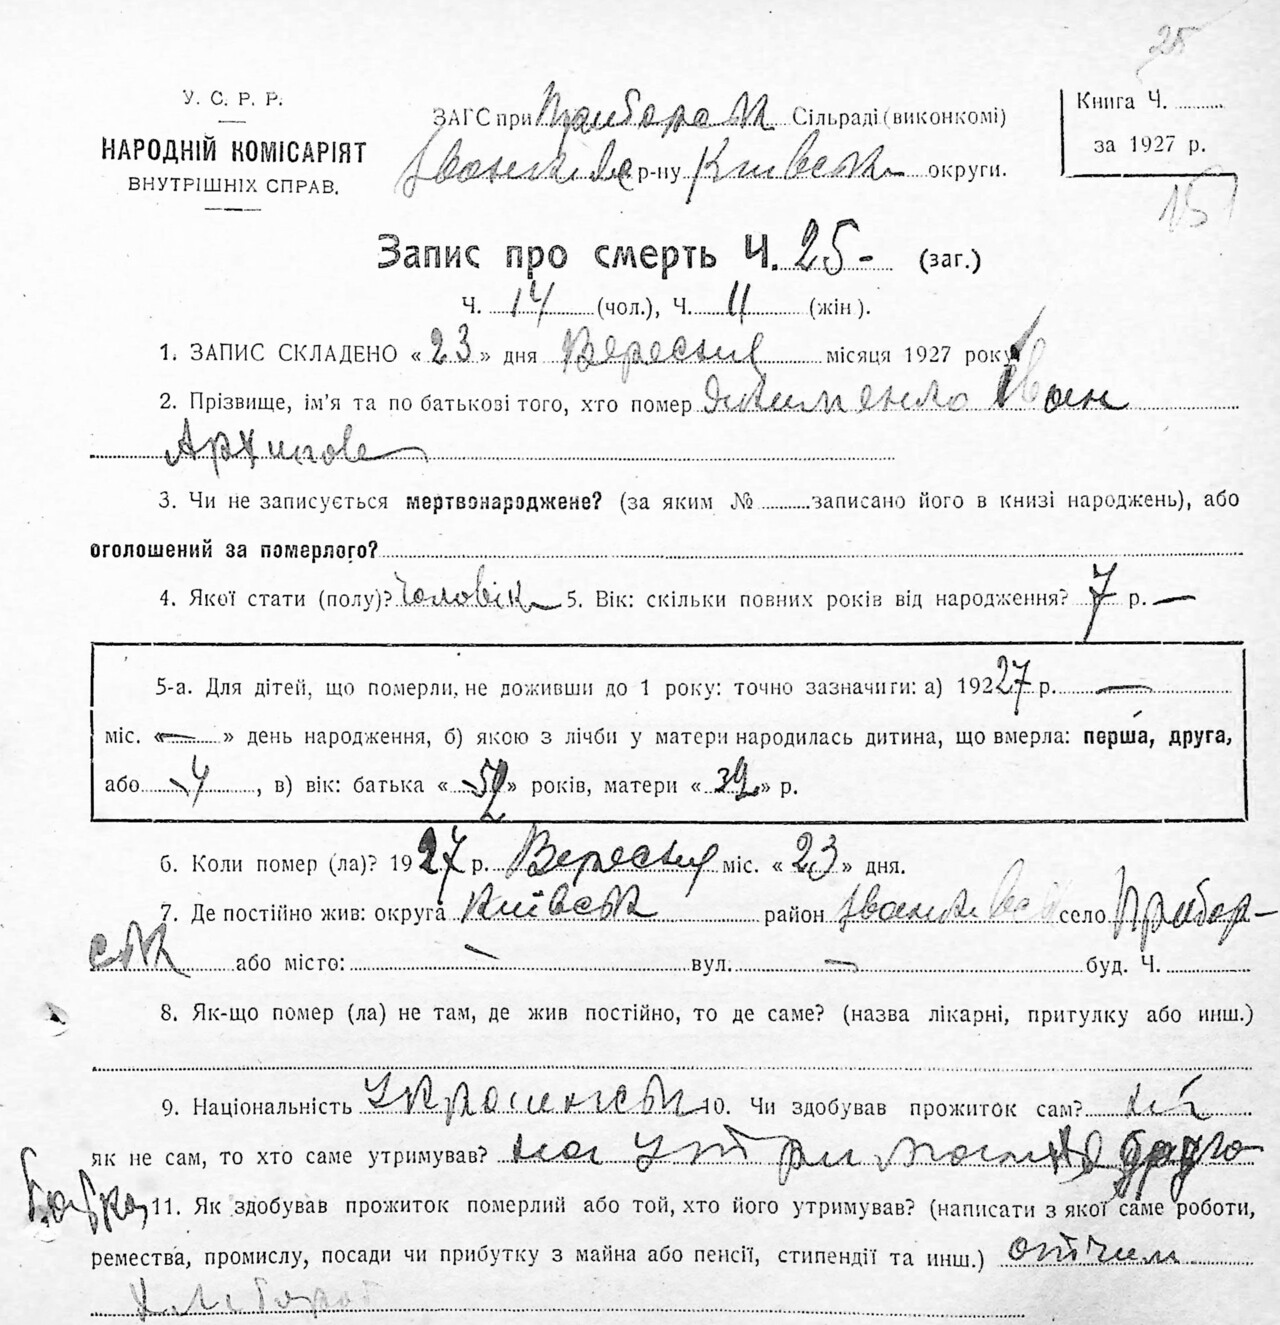 25
У. С. Р. Р.
НАРОДНІЙ КОМІСАРІЯТ
ВНУТРІШНІХ СПРАВ.
ЗАГС при Приборск Сільраді (виконкомі)
Іванківс р-ну Київськ округи.
Книга Ч.
за 1927 р.
15
Запис про смерть Ч. 25- (заг.)
Ч. 14 (чол.), Ч. 11 (жін).
1. ЗАПИС СКЛАДЕНО «23» дня Вересня місяця 1927 року
2. Прізвище, ім'я та по батькові того, хто помер Іван
Архипов
3. Чи не записується мертвонароджене? (за яким № записано його в книзі народжень), або
оголошений за померлого?
4. Якої стати (полу)? Чоловік 5. Вік: скільки повних років від народження? 7 р. —
5-а. Для дітей, що померли, не доживши до 1 року: точно зазначити: а) 19227 р. —
міс. «—» день народження, б) якою з лічби у матери народилась дитина, що вмерла: перша, друга,
або 4, в) вік: батька « » років, матери «39» р.
6. Коли помер (ла)? 1927 р. Вересня міс. «23» дня.
7. Де постійно жив: округа Київськ район Іванківс село Прибор-
ськ або місто: — вул. — буд. Ч.
8. Як-що помер (ла) не там, де жив постійно, то де саме? (назва лікарні, притулку або инш.)
9. Національність Украинськ 10. Чи здобував прожиток сам? ні
як не сам, то хто саме утримував? на утриманне друго
батька 11. Як здобував прожиток померлий або той, хто його утримував? (написати з якої саме роботи,
ремества, промислу, посади чи прибутку з майна або пенсії, стипендії та инш.) отчим
хлібороб